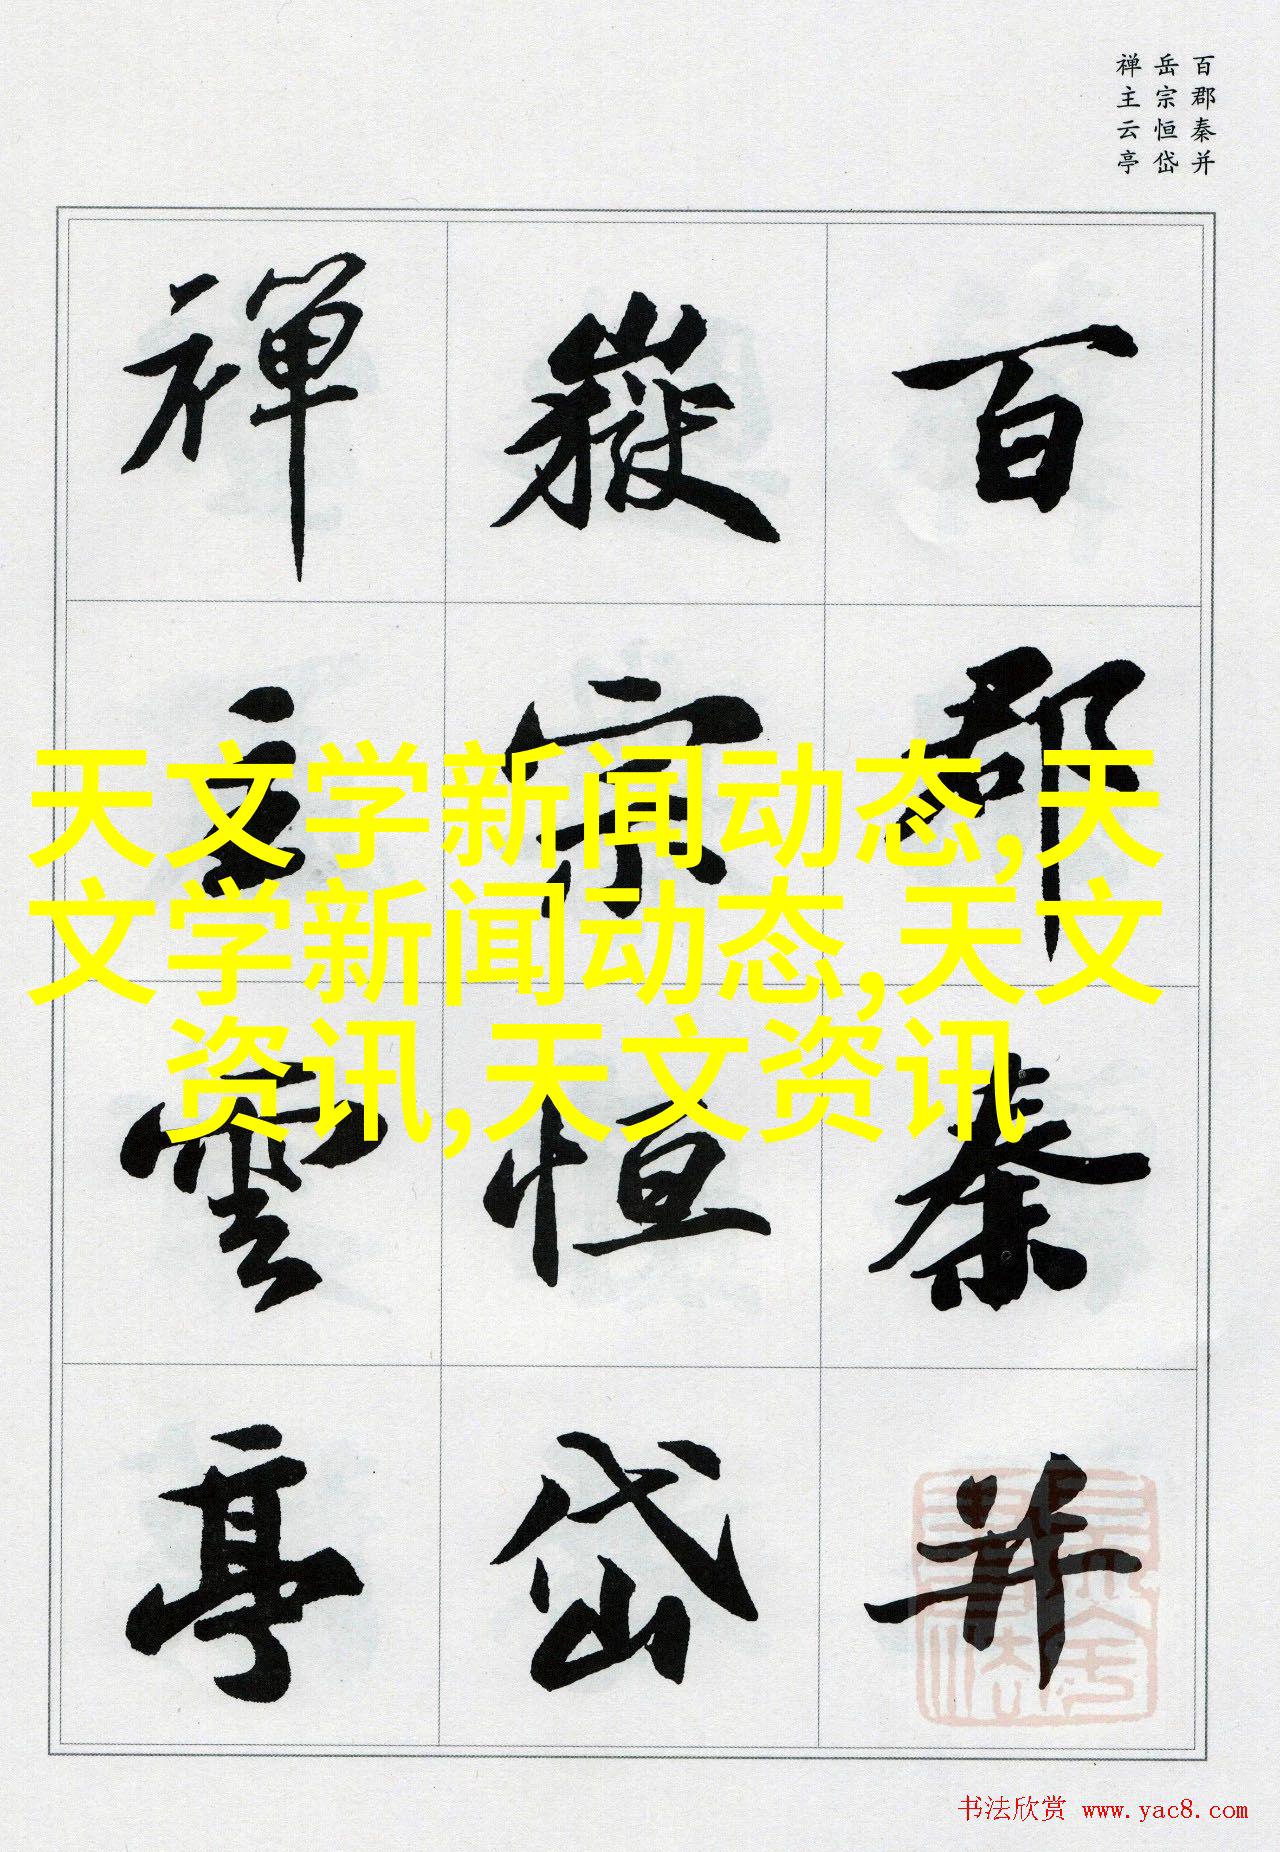 百郡秦并
岳宗恒岱
禅主云亭
百郡秦并
嶽宗恒岱
禅主雲亭
天文学新闻动态,天
文学新闻动态,天文
资讯,天文资讯
书法欣赏 www.yac8.com